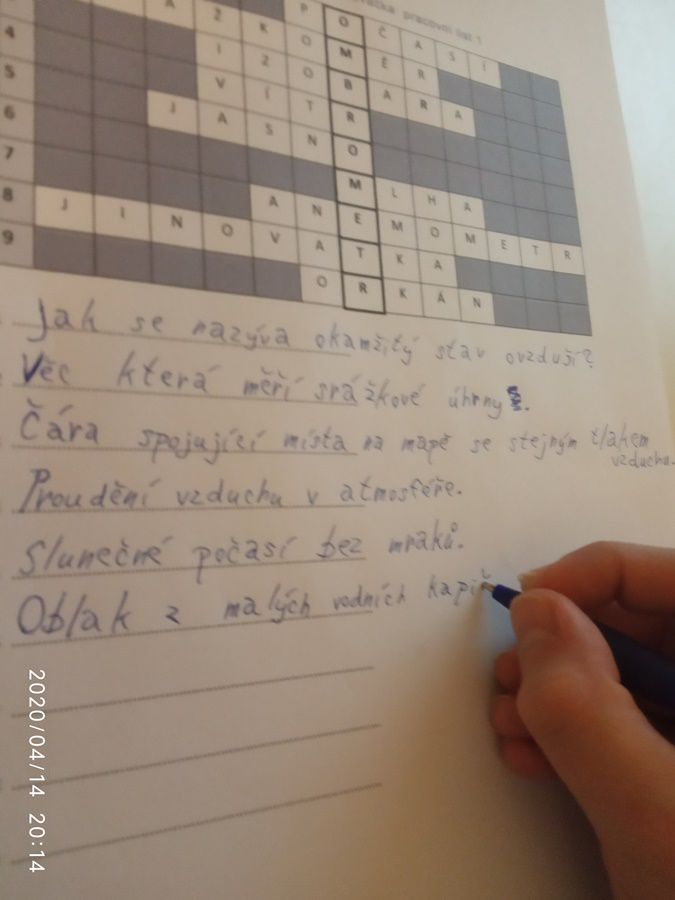 pracovní list 1
P O Č A S Í
A Ž K O M Ě R
4 I Z O B A R A
5 V Í T R
6 J A S N O
7 M L H A
8 A N E M O M E T R
9 J I N O V A T K A
O R K Á N
Jak se nazývá okamžitý stav ovzduší?
Věc která měří srážkové úhrny.
Čára spojující místa na mapě se stejným tlakem
vzduchu.
Proudění vzduchu v atmosféře.
Slunečné počasí bez mraků.
Oblak z malých vodních kapi
2020/04/14 20:14